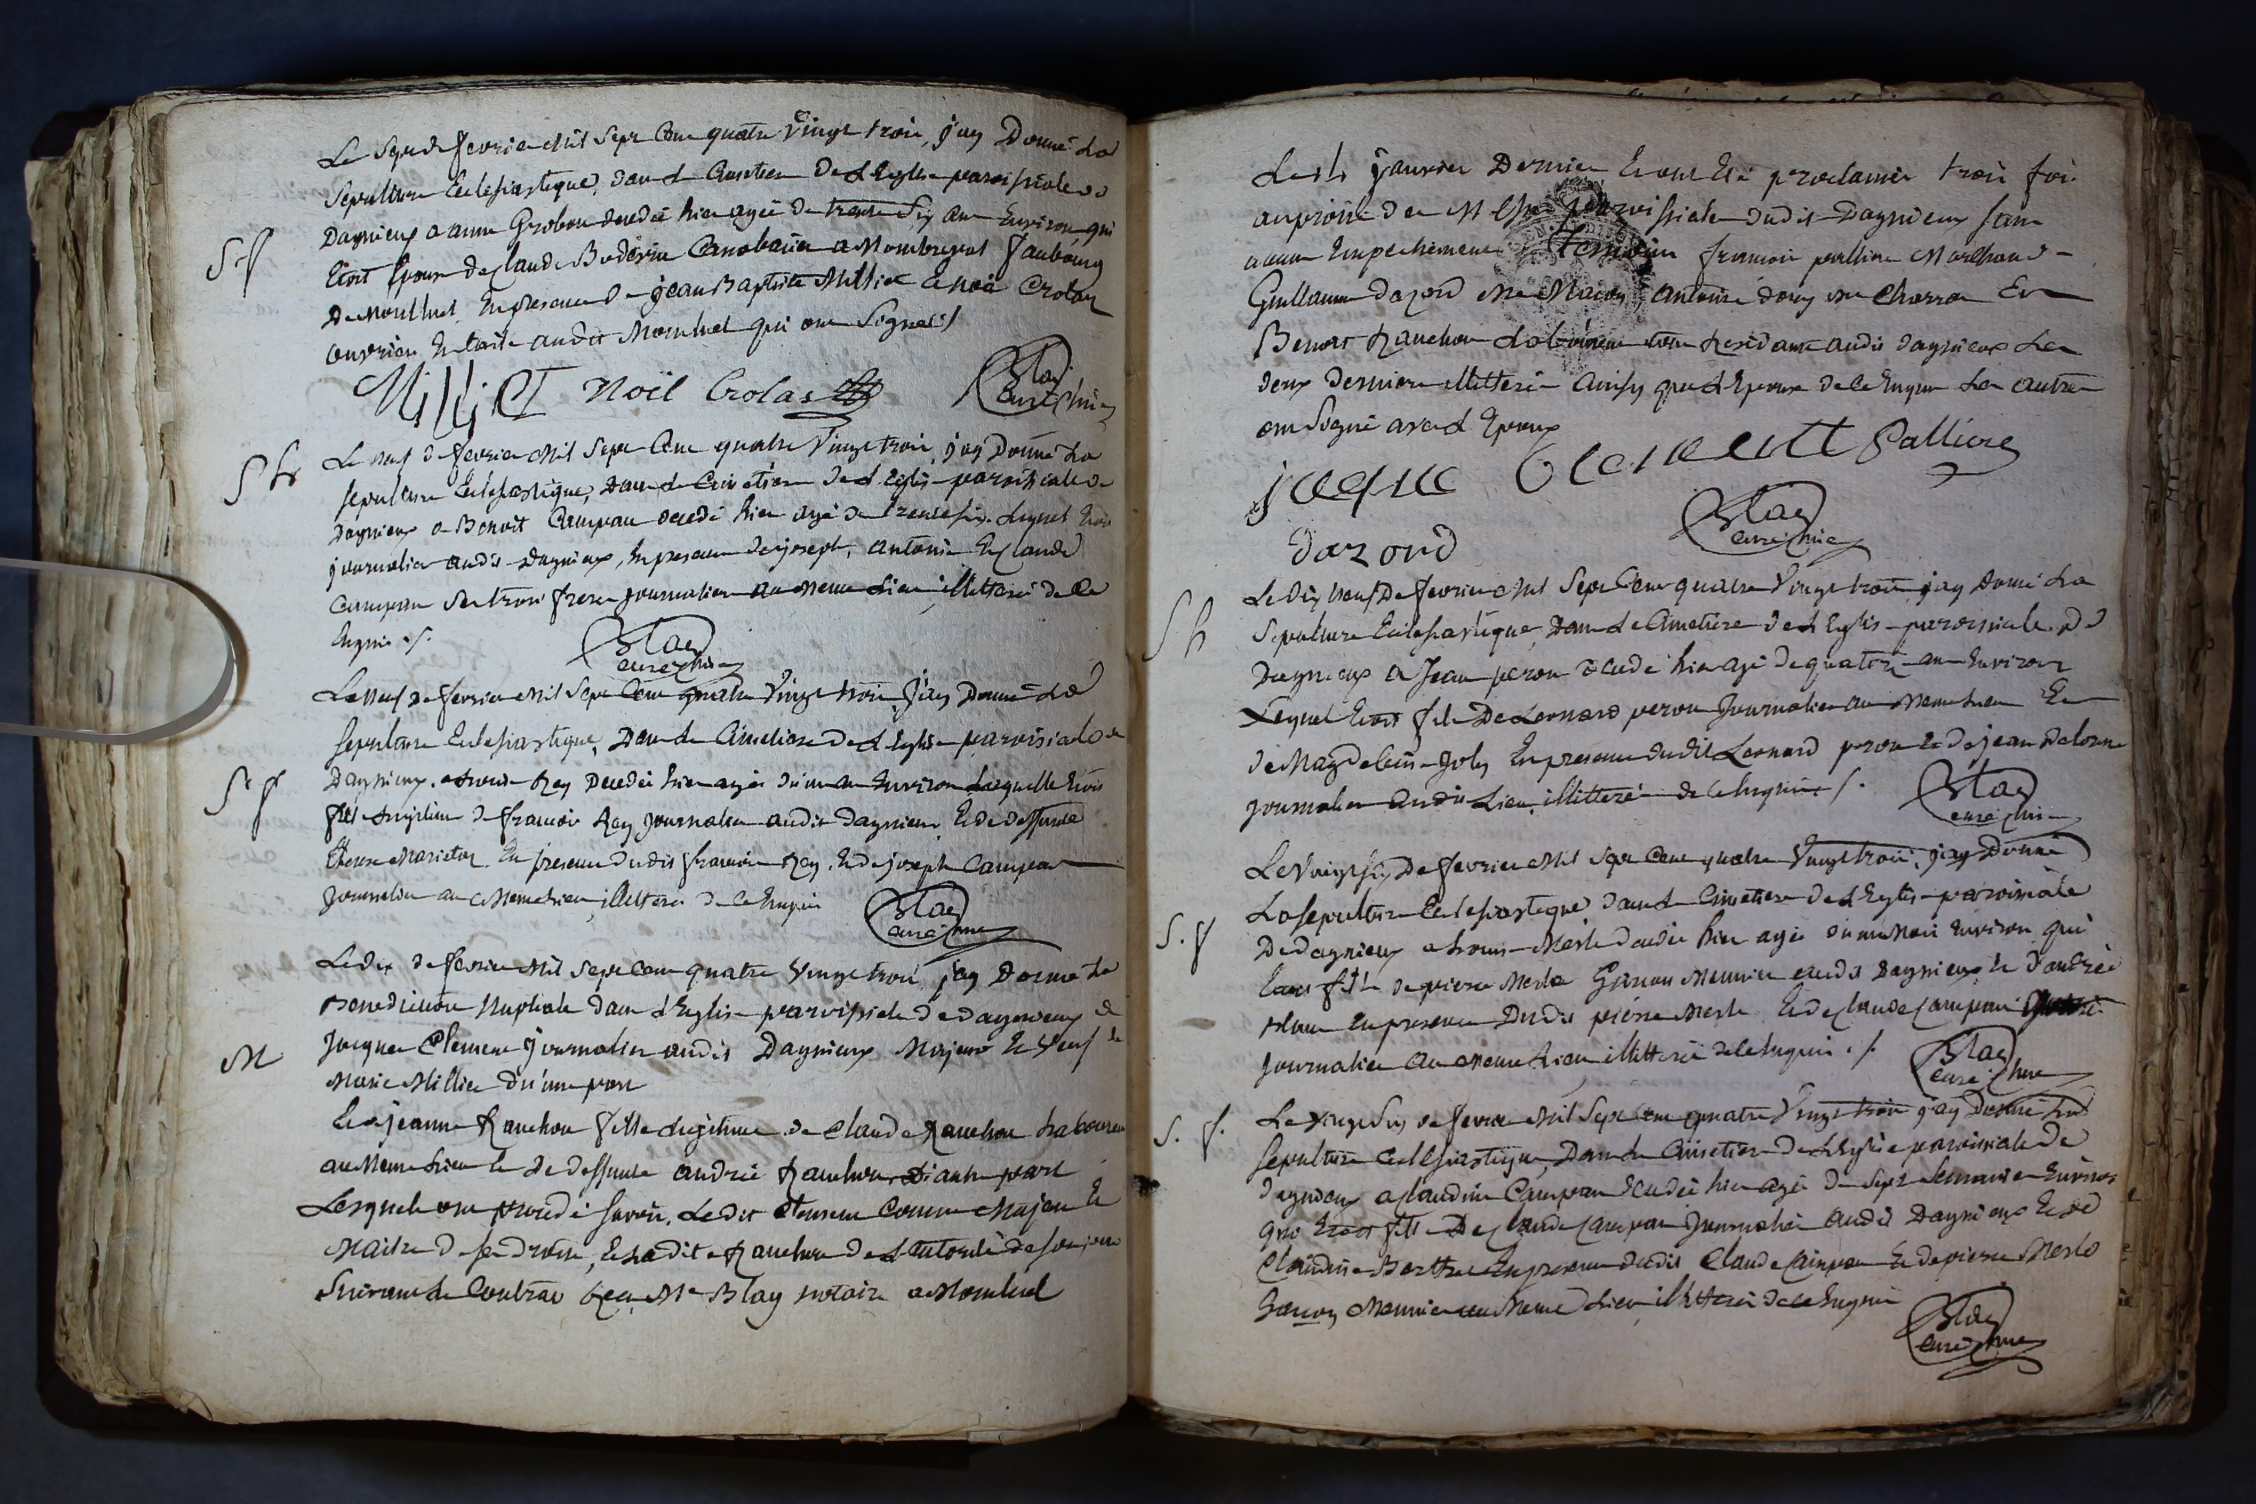 Le Sept de fevrier Mil Sept Cent quatre Vingt trois, j'ay Donné La
Sepulture Eclesiastique, dans le Cimetiere De L'Eglise paroissiale de
S f
Dagnieux a anne Grobon decedée hier agée de trente Six ans Environ, qui
Etoit Epouse de Claude Buderin Cenobarier a Montluel faubourg
De Montluel, En presence de jean Baptiste Milliet Et Noël Crolas
ouvrier En laine audit Montluel qui ont Signés ./
Milliet Noël Crolas
Blay
curé
S h
Le neuf de fevrier Mil Sept Cent quatre Vingt trois, j'ay Donné La
sepulture Eclesiastique, Dans le Cimetiere De L'Eglise paroissiale de
Dagnieux a Benoit Campan decedé hier agé de trente six. Lequel Etoit
journalier audit Dagnieux, En presence de joseph, antoine Et Claude
Campan Ses trois freres journaliers au Meme Lieu, illitterés de Ce
Enquis ./.
Blay
curé
Le neuf de fevrier Mil Sept Cent quatre Vingt trois, j'ay Donné La
Sepulture Eclesiastique, Dans le Cimetiere de L'Eglise paroissiale de
S f
Dagnieux a Rey Decedée hier agée d'un an Environ Laquelle Etoit
fille Legitime de françois Rey journalier audit Dagnieux, Et de deffunte
Marieton En presence dudit françois Rey, Et de joseph Campan
journalier au Meme Lieu, illitterés de Ce Enquis
Blay
curé
Le dix de fevrier Mil Sept Cent quatre Vingt trois, j'ay Donné La
Benediction Nuptiale dans L'Eglise paroissiale de dagnieux a
M
Jacques Clement journalier audit Dagnieux Majeur Et Veuf de
Marie Millier d'une part
Et a jeanne Ranchon fille Legitime de Claude Ranchon Laboureur
au Meme Lieu Et de deffunte andrée Ranchon, d'autre part
Lesquels ont procedé savoir, Le dit Clement Comme Majeur Et
Maitre de ses droits, Et La dite Ranchon de L'autorité de son pere
Suivant le Contrat reçu Me Blay notaire a Montluel
Le janvier Dernier Et ont Eté proclamés trois fois
au prône de Messe paroissiale dudit Dagnieux sans
aucun Empechement. temoins françois pallliere Marchand
Guillaume dazord Me Maçon, antoine Me Charron Et
Benoit Ranchon Laboureur tous Residants audit dagnieux Les
deux Derniers illitterés Ainsy que L'Epouse de Ce Enquis Les autres
ont Signé avec L'Epoux
jacque Clement Palliere
dazord
Blay
curé
Le dix neuf De fevrier Mil Sept Cent quatre Vingt trois, j'ay Donné La
S h
Sepulture Eclesiastique, Dans Le Cimetiere de L'Eglise paroissiale De
Dagnieux a Jean peron decedé hier agé de quatorze ans Environ
Lequel Etoit fils De Leonard peron Journalier au Meme Lieu Et
de Magdeleine Joly En presence dudit Leonard peron Et de jean Delorme
journalier audit Lieu, illitterés de Ce Enquis ./.
Blay
curé
Le Vingt six De fevrier Mil Sept Cent quatre Vingt trois, j'ay Donné
La Sepulture Eclesiastique dans le Cimetiere de L'Eglise paroissiale
S. f
De dagnieux a Merle decedée hier agée d'un Mois Environ qui
Etoit fille de pierre Merle Garçon Meunier audit Dagnieux Et d'andrée
En presence Dudit pierre Merle Et de Claude Campan
Journalier au Meme Lieu illitterés de Ce Enquis ./.
Blay
curé
S. f.
Le Vingt Six de fevrier Mil Sept Cent quatre Vingt trois j'ay Donné La
Sepulture Ecclesiastique, Dans le Cimetiere de L'Eglise paroissiale de
dagnieux a Claudine Campan decedée hier agée de Sept Semaines Environ
qui Etoit fille De Claude Campan Journalier audit Dagnieux Et de
Claudine En presence dudit Claude Campan Et de pierre Merle
Garçon Meunier au Meme Lieu, illitterés de Ce Enquis
Blay
curé